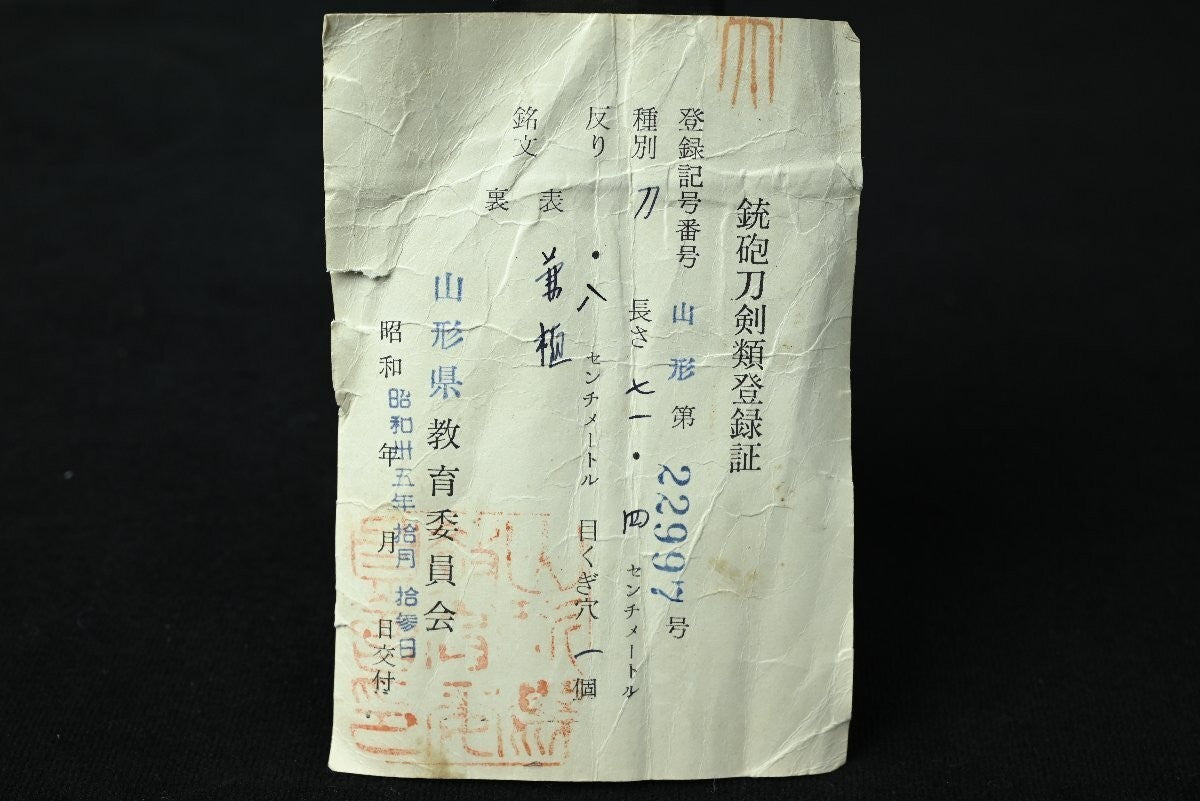 銃砲刀剣類登録証
登録記号番号 山形 第 22997 号
種別 刀 長さ 七一・四 センチメートル
反り ・八 センチメートル 目くぎ穴 一 個
銘文 表 兼植
裏
山形県教育委員会
昭和 年 月 日交付
昭和卅五年拾月拾参日